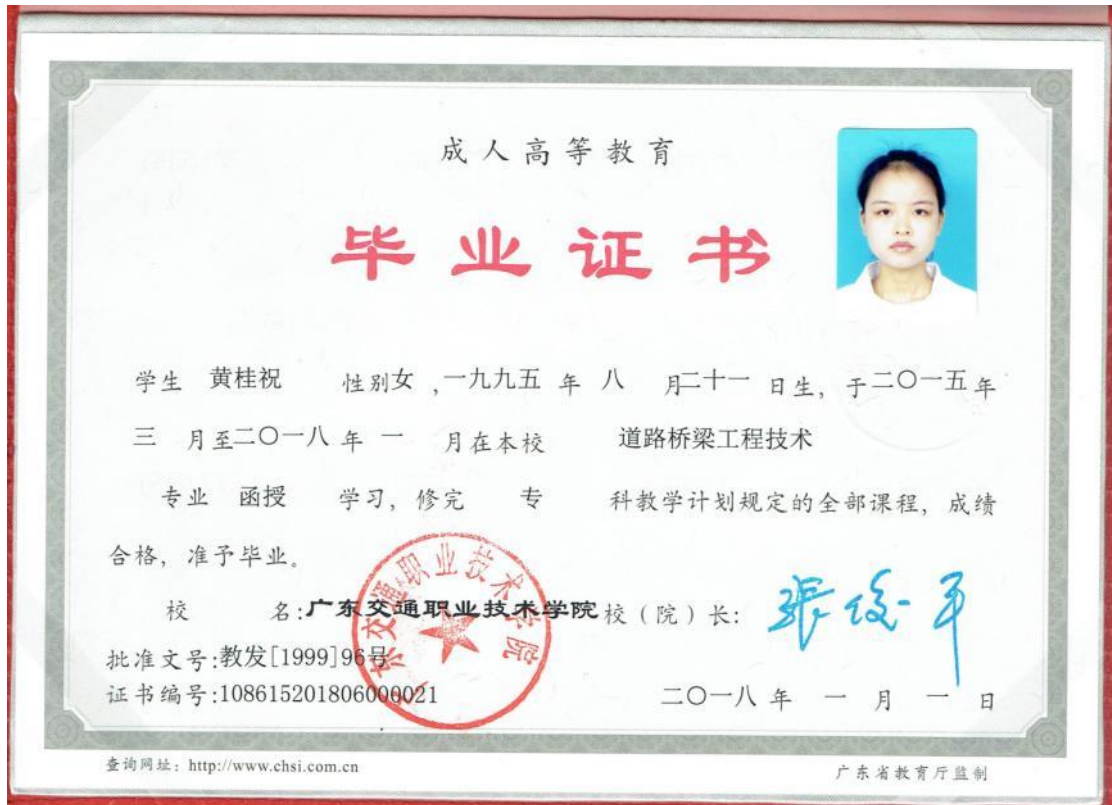 成人高等教育
毕业证书
学生 黄桂祝 性别女 ,一九九五 年 八 月二十一 日生, 于二〇一五年
三 月至二〇一八 年 一 月在本校 道路桥梁工程技术
专业 函授 学习, 修完 专 科教学计划规定的全部课程, 成绩
合格, 准予毕业。
校 名:广东交通职业技术学院 校(院)长: 張俊平
广东交通职业技术学院
批准文号:教发[1999]96号
证书编号:108615201806000021 二〇一八 年 一 月 一 日
查询网址: http://www.chsi.com.cn 广东省教育厅监制